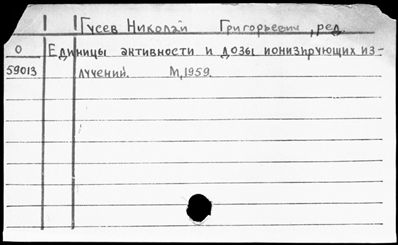 Гусев Николай Григорьевич, ред.
О Единицы активности и дозы ионизирующих из-
59013 лучений. М, 1959.